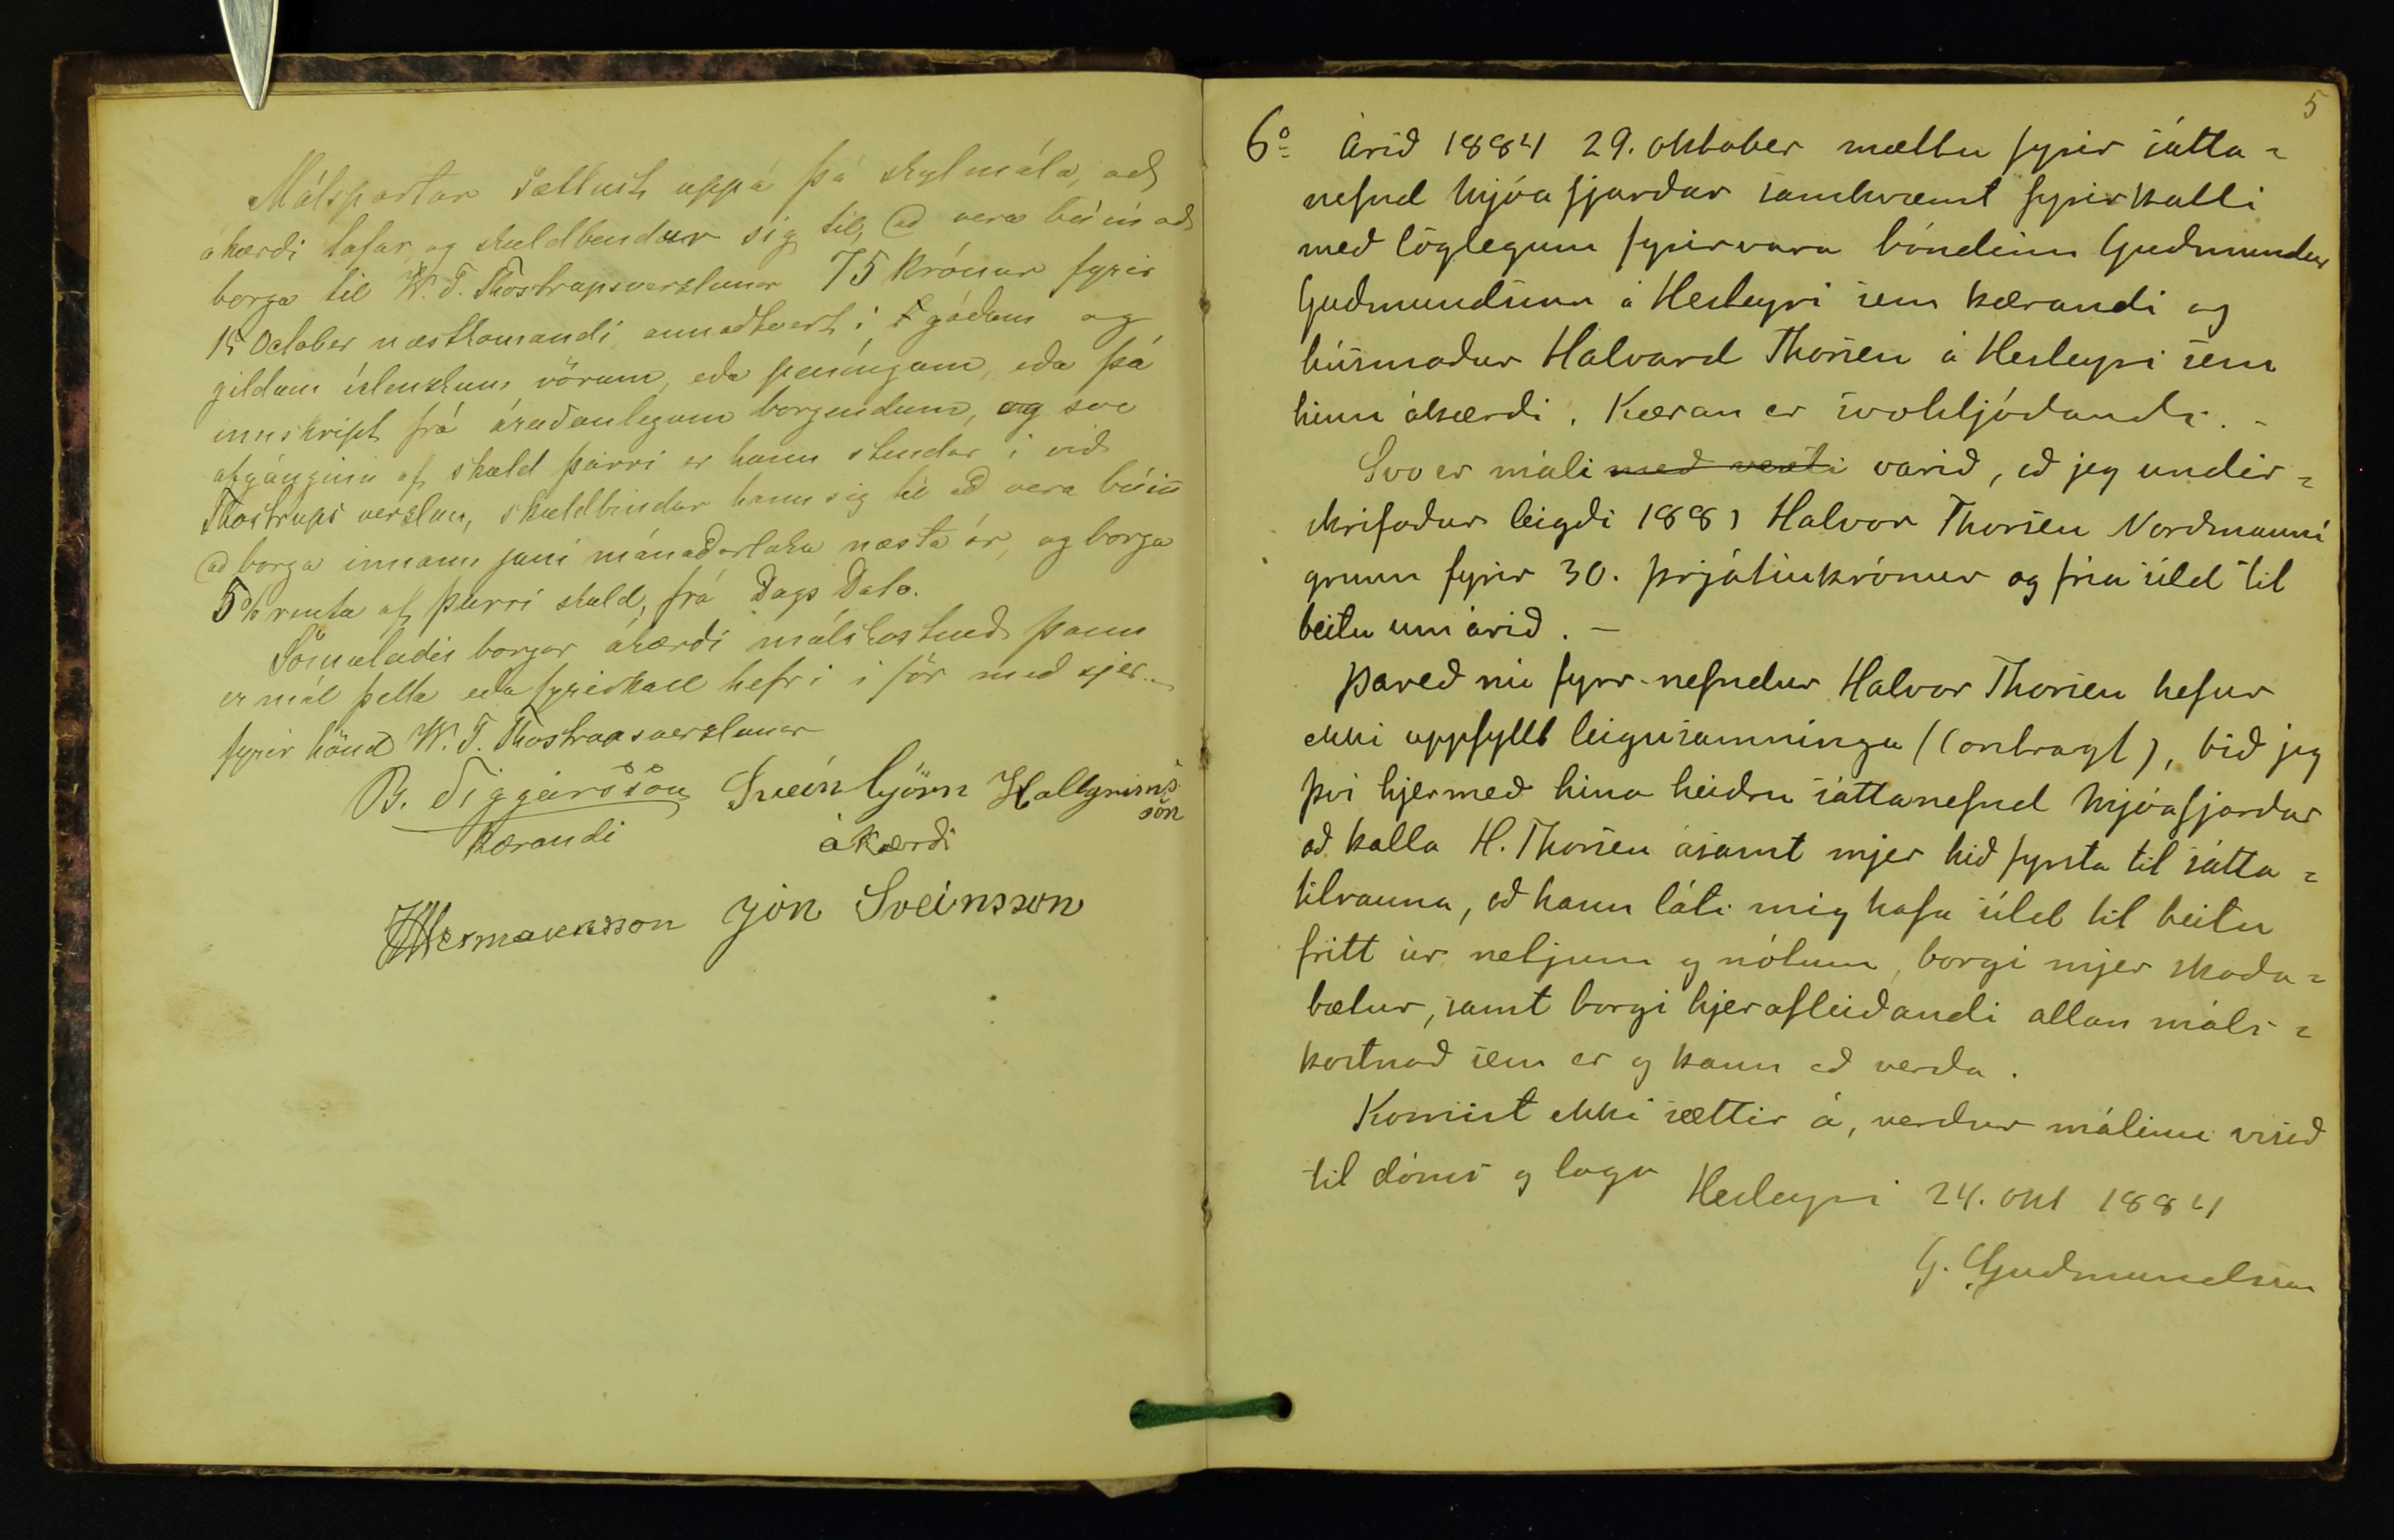 Málspartar sættust uppá þá skylmála, að
ákærði lofar og skuldbendur sig til, að vera búin að
borga til W. T. Thostrupsverzlunar 75 krónur fyrir
15 October næstkomandi annaðhvort i góðum og
gildum íslenzkum vörum, eða peníngum, eða þá
innskript frá áreiðanlegum borgendum, og svo
afgánginn af skuld þeirri er hann stendur i við
Thostrups verzlun, skuldbindur hann sig til að vera búin
að borga innann juni mánaðarloka næsta ár, og borga
5% rentu af þeirri skuld, frá Dags Dato.
Sömuleiðis borgar ákærði málskostnað þann
er mál þetta eða fyrirkall hefri i för með sjer.
fyrir hönd W. T. Thostrupsverzlunar
B. Siggeirsson Sveinbjörn Hallgríms
son
Kærandi ákærði
Hermannsson Jón Sveinsson
5
6º Árið 1884 29. oktober mættu fyrir sátta=
nefnd Mjóafjarðar samkvæmt fyrirkalli
með löglegum fyrirvara bóndinn Guðmundur
Guðmundsson á Hesteyri sem kærandi og
húsmaður Halvard Thorsen á Hesteyri sem
hinn ákærði. Kæran er svohljóðandi. -
Svo er máli með vexti varið, að jeg undir=
skrifaður leigði 1881 Halvor Thorsen Norðmanni
grunn fyrir 30. þrjátiukrónur og fria síld til
beitu um árið. -
Þareð nú fyrr-nefndur Halvor Thorsen hefur
ekki uppfyllt leigusamninga (Contragt), bið jeg
því hjermeð hina heiðru sáttanefnd Mjóafjarðar
að kalla H. Thorsen ásamt mjer hið fyrsta til sátta=
tilrauna, að hann láti mig hafa síld til beitu
fritt úr netjum og nótum, borgi mjer skaða=
bætur, samt borgi hjerafleiðandi allan máls=
kostnað sem er og kann að verða.
Komist ekki sættir á, verður málinu visað
til dóms og laga
Hesteyri 24. okt 1884
G. Guðmundsson